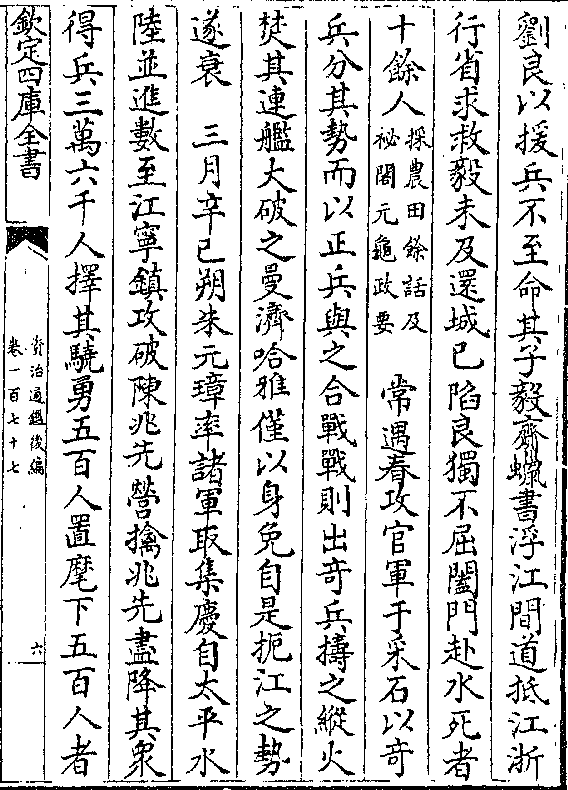 劉良以援兵不至命其子毅齎蠟書浮江間道抵江浙
行省求救毅未及還城已陷良獨不屈闔門赴水死者
十餘人採農田餘話及
祕閣元龜政要
常遇春攻官軍于采石以奇
兵分其勢而以正兵與之合戰戰則出奇兵擣之縱火
焚其連艦大破之曼濟哈雅僅以身免自是扼江之勢
遂衰　三月辛巳朔朱元璋率諸軍取集慶自太平水
陸並進數至江寧鎮攻破陳兆先營擒兆先盡降其衆
得兵三萬六千人擇其驍勇五百人置麾下五百人者
欽定四庫全書
資治通鑑後編
卷一百七十七
六